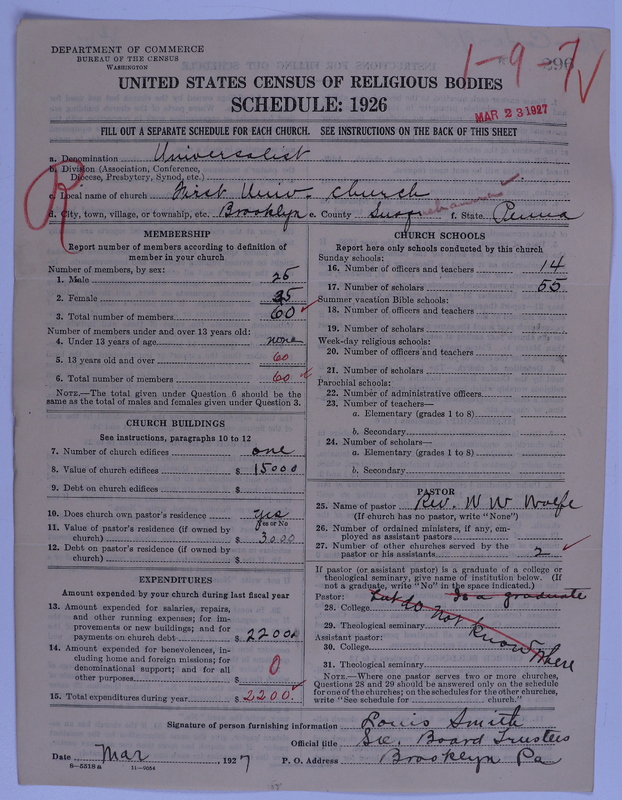 DEPARTMENT OF COMMERCE
BUREAU OF THE CENSUS
WASHINGTON
1-9-7
UNITED STATES CENSUS OF RELIGIOUS BODIES
SCHEDULE: 1926
MAR 23 1927
FILL OUT A SEPARATE SCHEDULE FOR EACH CHURCH. SEE INSTRUCTIONS ON THE BACK OF THIS SHEET
a. Denomination Universalist
b. Division (Association, Conference, Diocese, Presbytery, Synod, etc.)
R
c. Local name of church First Univ. Church
d. City, town, village, or township, etc. Brooklyn e. County Susquehanna f. State Penna
MEMBERSHIP
Report number of members according to definition of member in your church
Number of members, by sex:
1. Male 25
2. Female 35
3. Total number of members 60
Number of members under and over 13 years old:
4. Under 13 years of age none
5. 13 years old and over 60
6. Total number of members 60
NOTE.—The total given under Question 6 should be the same as the total of males and females given under Question 3.
CHURCH BUILDINGS
See instructions, paragraphs 10 to 12
7. Number of church edifices one
8. Value of church edifices $ 15000
9. Debt on church edifices $
10. Does church own pastor's residence yes
Yes or No
11. Value of pastor's residence (if owned by church) $ 3000
12. Debt on pastor's residence (if owned by church) $
EXPENDITURES
Amount expended by your church during last fiscal year
13. Amount expended for salaries, repairs, and other running expenses; for improvements or new buildings; and for payments on church debt $ 2200
14. Amount expended for benevolences, including home and foreign missions; for denominational support; and for all other purposes $ 0
15. Total expenditures during year $ 2200.
CHURCH SCHOOLS
Report here only schools conducted by this church
Sunday schools:
16. Number of officers and teachers 14
17. Number of scholars 55
Summer vacation Bible schools:
18. Number of officers and teachers
19. Number of scholars
Week-day religious schools:
20. Number of officers and teachers
21. Number of scholars
Parochial schools:
22. Number of administrative officers
23. Number of teachers—
a. Elementary (grades 1 to 8)
b. Secondary
24. Number of scholars—
a. Elementary (grades 1 to 8)
b. Secondary
PASTOR
25. Name of pastor Rev. W W Wolfe
(If church has no pastor, write "None")
26. Number of ordained ministers, if any, employed as assistant pastors
27. Number of other churches served by the pastor or his assistants 2
If pastor (or assistant pastor) is a graduate of a college or theological seminary, give name of institution below. (If not a graduate, write "No" in the space indicated.)
Pastor: Is a graduate
28. College but do not know where
29. Theological seminary
Assistant pastor:
30. College
31. Theological seminary
NOTE.—Where one pastor serves two or more churches, Questions 28 and 29 should be answered only on the schedule for one of the churches; on the schedules for the other churches, write "See schedule for church."
Signature of person furnishing information Louis Smith
Official title Sec. Board Trustees
Date Mar 1927 P. O. Address Brooklyn Pa
8-5518a 11-9054